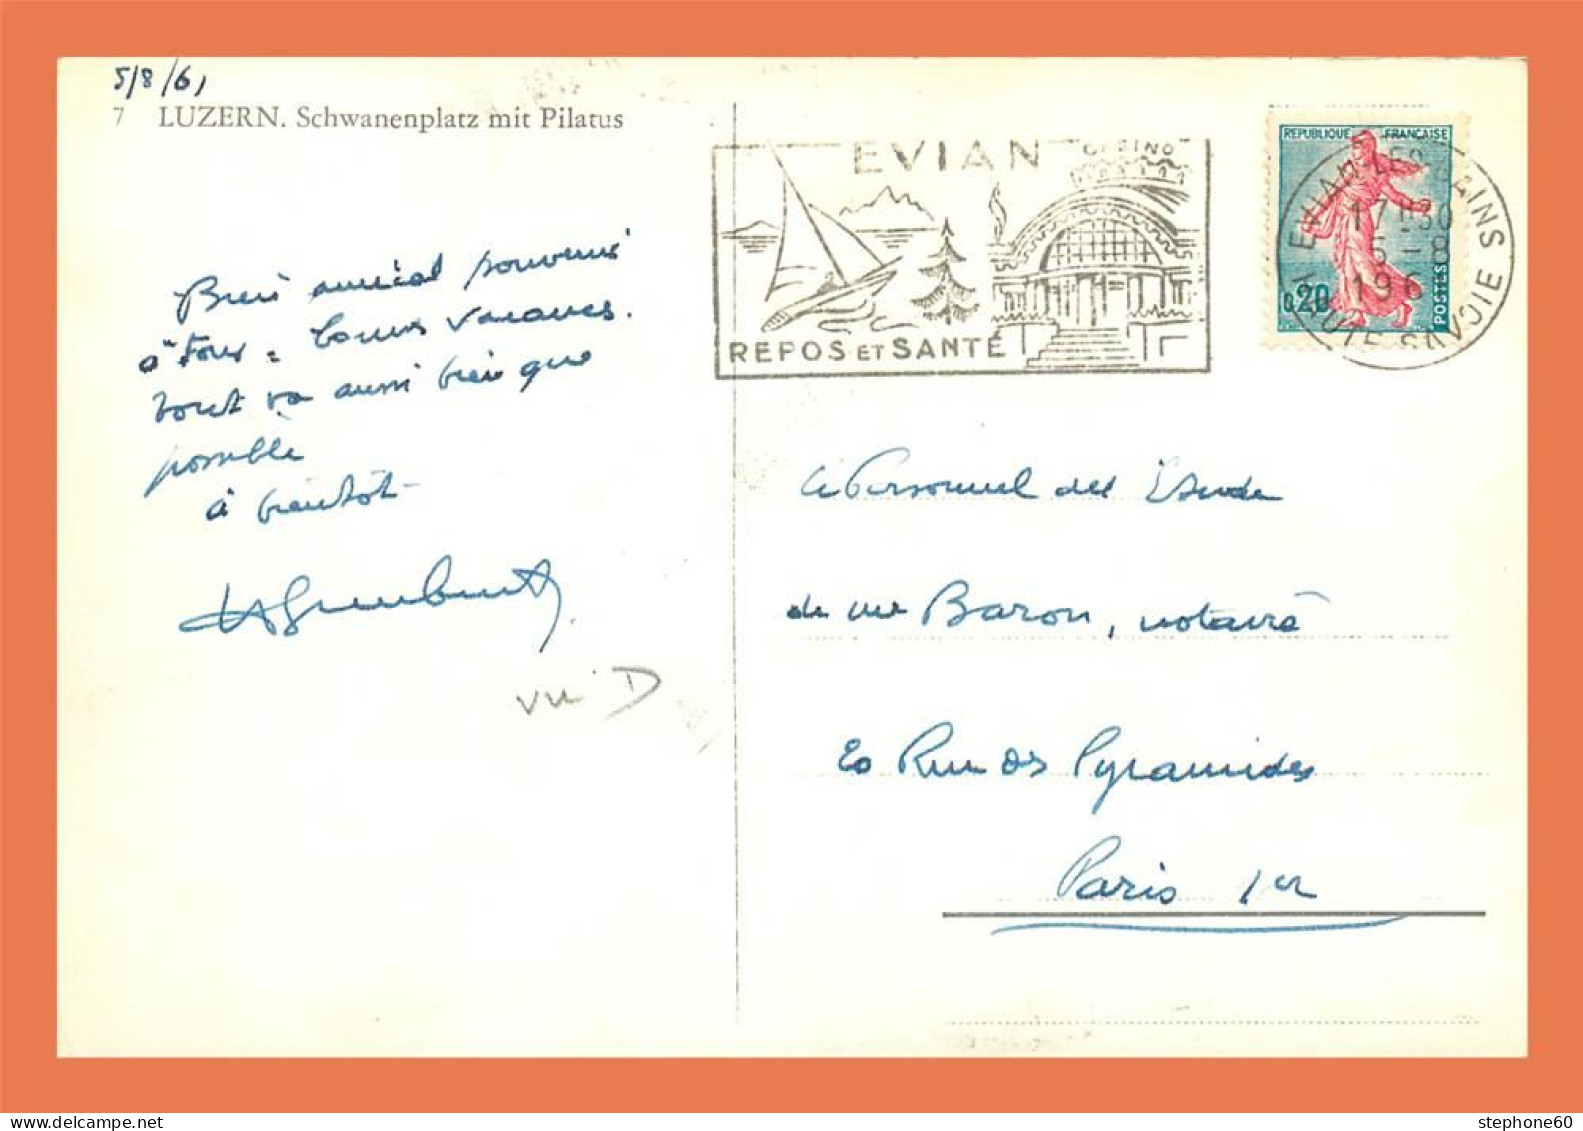 5/8/61
7 LUZERN. Schwanenplatz mit Pilatus
Bien amical souvenir
à tous - Bonnes vacances.
tout va aussi bien que
possible
à bientôt
vu D
EVIAN
CASINO
REPOS ET SANTÉ
REPUBLIQUE FRANÇAISE
0,20
POSTES
EVIAN-LES-BAINS
17H30
5-8
196
HAUTE-SAVOIE
Le Personnel de l'Etude
de Me Baron, notaire
20 Rue des Pyramides
Paris 1er
stephone60